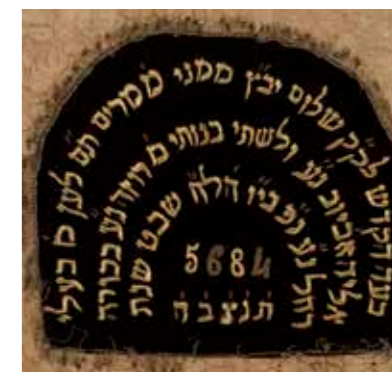 הקדוש לק״ק שלום יב״ץ ממני ממרים תם לע״ן מ בעלי
אליהו אביוב נ״ע ולשתי בנותי מ רוזה נ״ע בכורה
רחל נ״ע נפ ביו הלח שבט שנת
5684
תנצבה